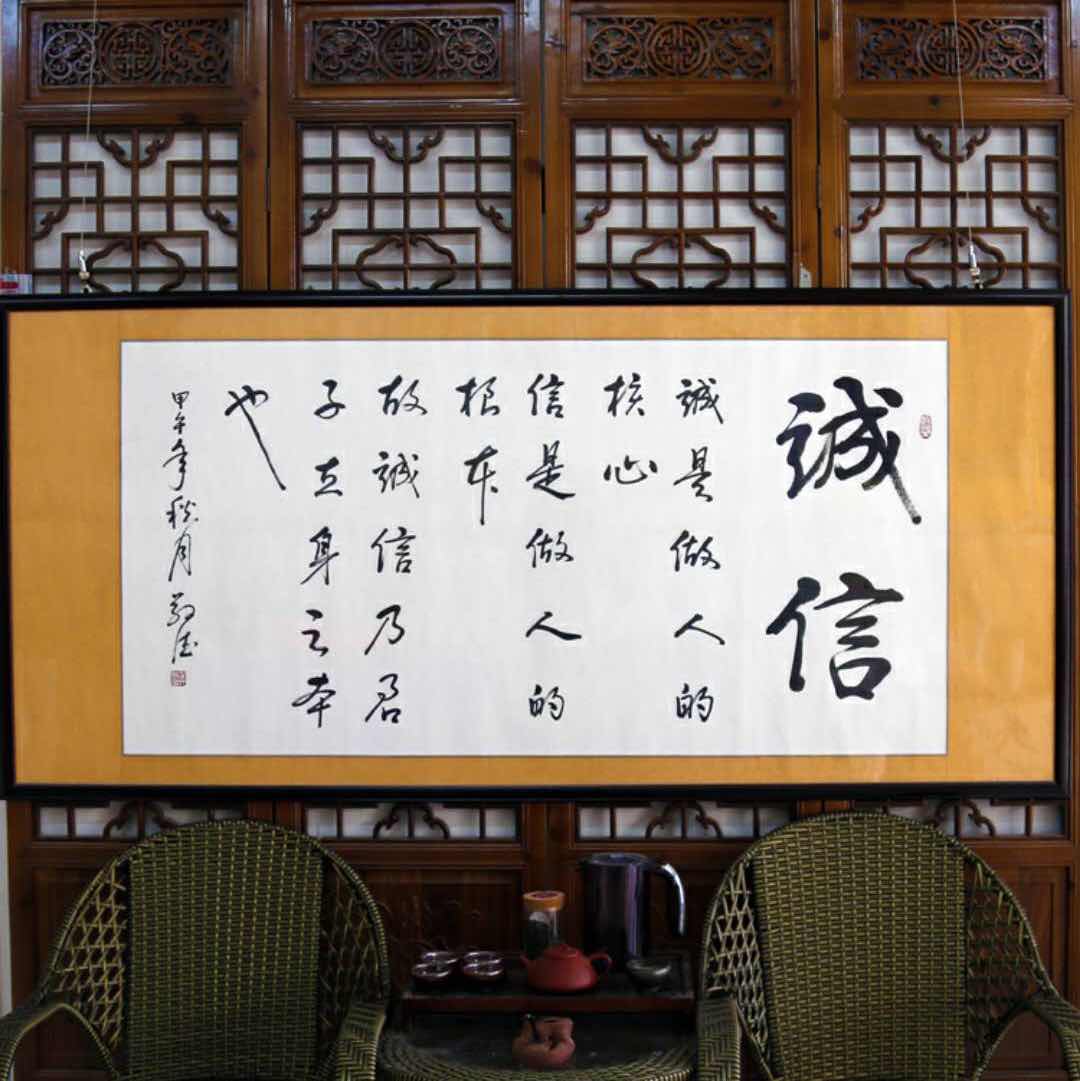 誠信
誠是做人的
核心
信是做人的
根本
故誠信乃君
子立身之本
也
甲午年秋月